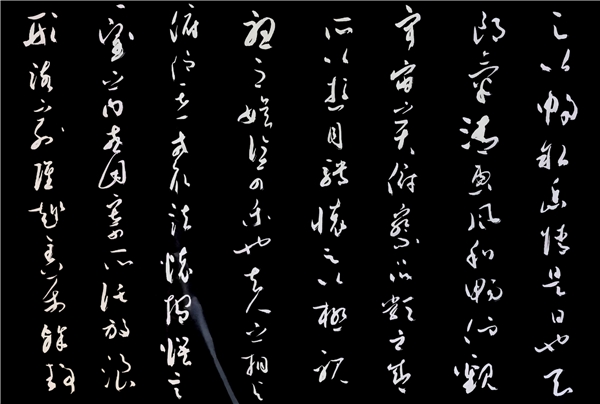 足以暢敘幽情是日也天
朗氣清惠風和暢仰觀
宇宙之大俯察品類之盛
所以遊目騁懷足以極視
聽之娛信可樂也夫人之相與
俯仰一世或取諸懷抱悟言
一室之內或因寄所託放浪
形骸之外雖趣舍萬殊靜